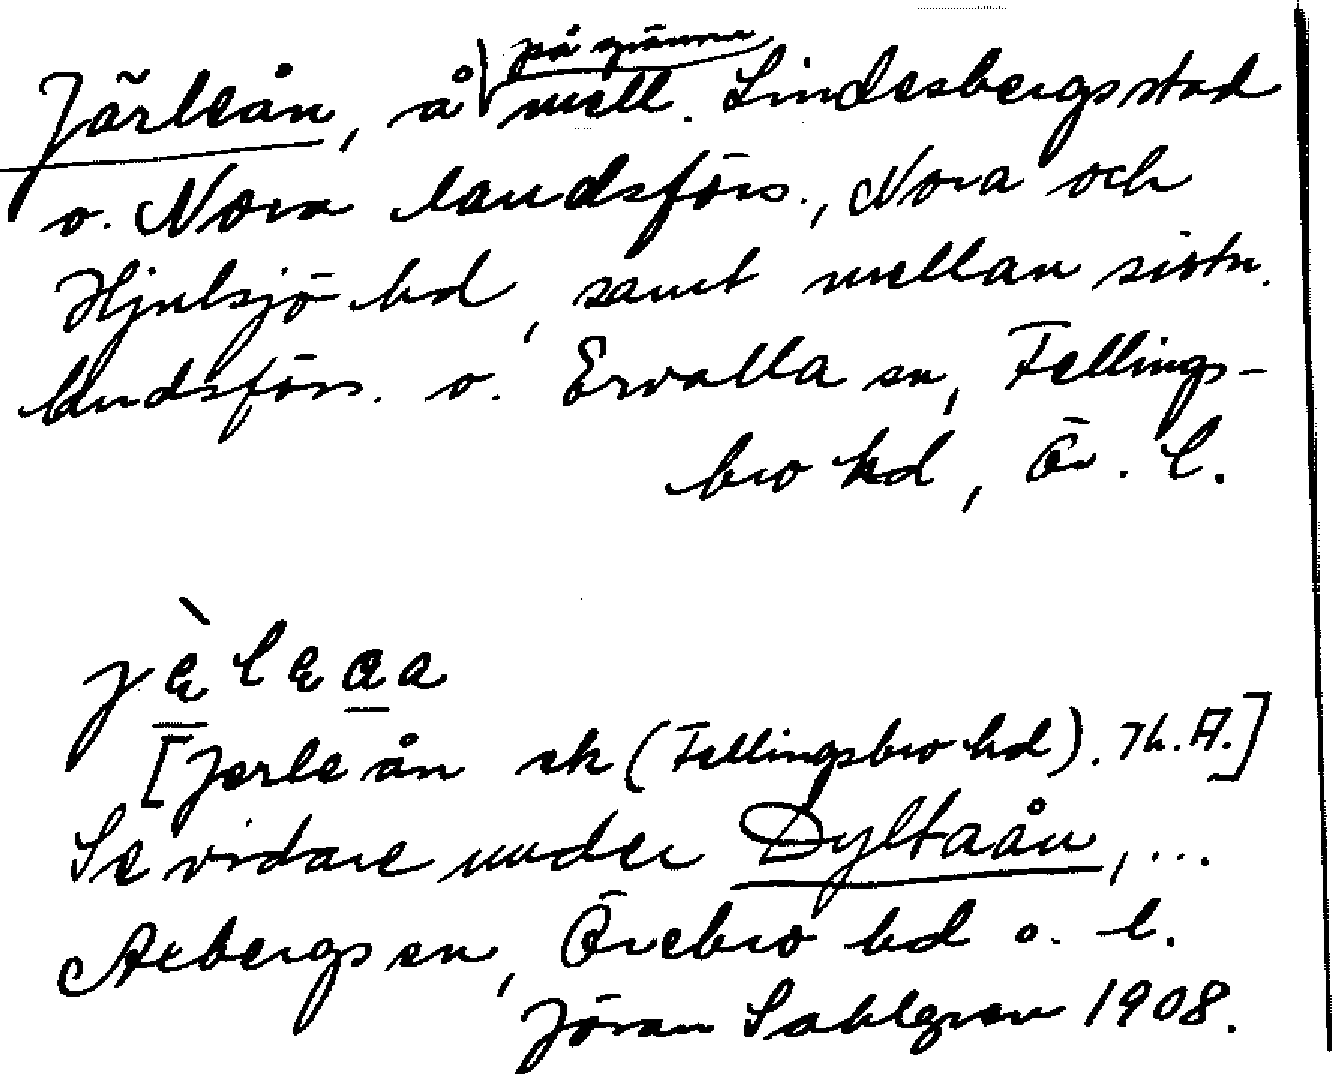 på gränsen
Järleån, å mell. Lindesbergs stad
o. Nora landsförs., Nora och
Hjulsjö hd, samt mellan sistn.
landsförs. o. Ervalla sn, Fellings-
bro hd, Ör. l.
[Jerle ån sk (Fellingsbro hd). Th. A.]
Se vidare under Dyltaån, ...
Axbergs sn, Örebro hd o. l.
Jöran Sahlgren 1908.